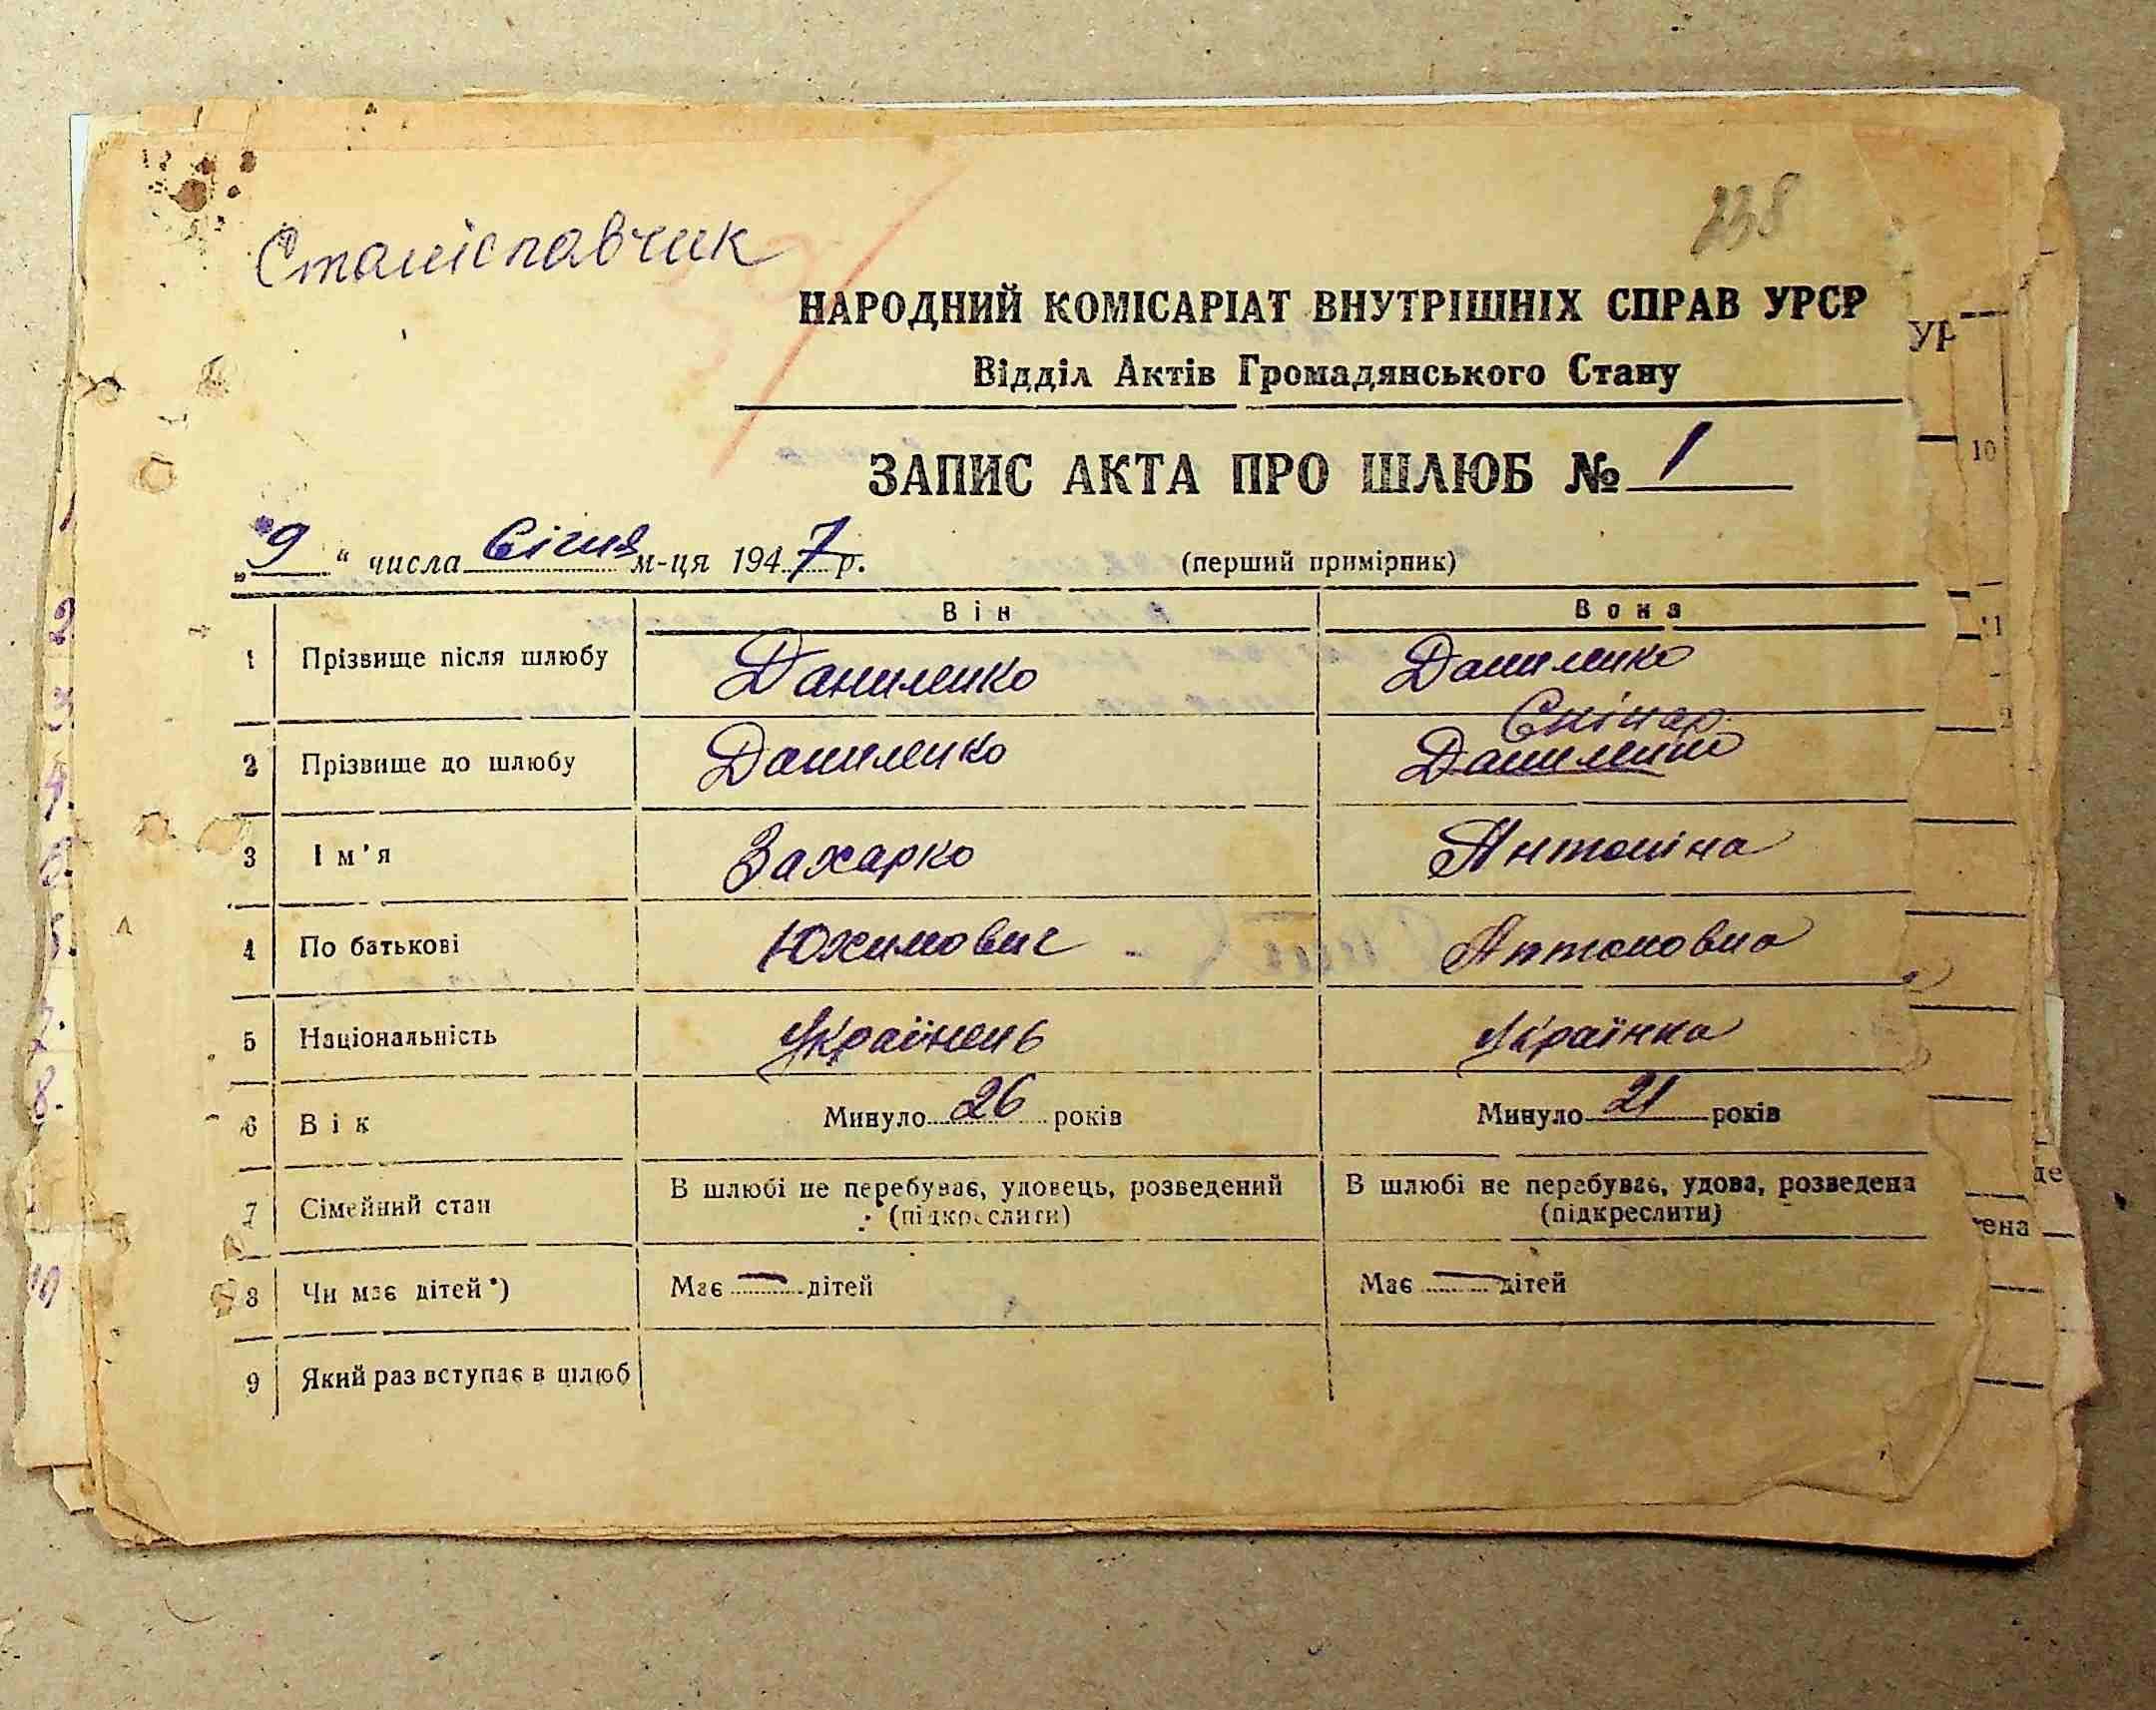 Станіславчик
238
НАРОДНИЙ КОМІСАРІАТ ВНУТРІШНІХ СПРАВ УРСР
Відділ Актів Громадянського Стану
ЗАПИС АКТА ПРО ШЛЮБ № 1
„9“ числа Січня м-ця 1947 р. (перший примірник)
Він Вона
1 Прізвище після шлюбу Даниленко Даниленко
Скінар
2 Прізвище до шлюбу Даниленко Даниленко
3 Ім'я Захарко Антоніна
4 По батькові Юхимович Антоновна
5 Національність Українець Українка
6 Вік Минуло 26 років Минуло 21 років
7 Сімейний стан В шлюбі не перебуває, удовець, розведений (підкреслити) В шлюбі не перебуває, удова, розведена (підкреслити)
8 Чи має дітей*) Має — дітей Має — дітей
9 Який раз вступає в шлюб